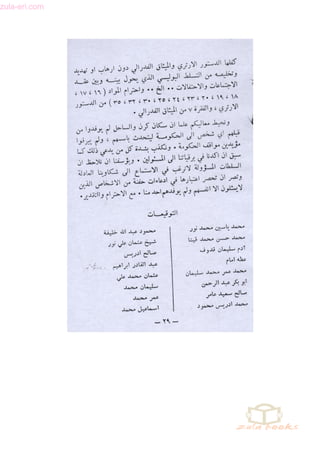 zula-eri.com
كفلها الدستور الارتري والميثاق الفدرالي دون ارهاب او تهديد
وتخليصه من التسلط البوليسي الذي يحول بينه وبين عقد
الاجتماعات والاحتفالات ٠٠ الخ ٠٠ واحترام المواد ( ١٦ ، ١٧ ،
١٨ ، ١٩ ، ٢٠ ، ٢٣ ، ٢٤ ، ٢٥ ، ٣٠ ، ٣٢ ، ٣٥ ) من الدستور
الارتري ، والفقرة ٧ من الميثاق الفدرالي ٠
ونحيط معاليكم علما ان سكان كرن والساحل لم يوفدوا من
قبلهم اي شخص الى الحكومة ليتحدث باسمهم ، ولم يبرقوا
مؤيدين مواقف الحكومة ٠ ونكذب بشدة كل من يدعي ذلك كما
سبق ان اكدنا في برقياتنا الى المسئولين ٠ ويؤسفنا ان نلاحظ ان
السلطات المسؤولة لاترغب في الاستماع الى شكاوينا العادلة
وتصر ان تحصر اعتبارها في ادعاءات حفنة من الاشخاص الذين
لايمثلون الا انفسهم ولم يوفدهم احد منا ٠ مع الاحترام والتقدير٠
التوقيعــات
محمد ياسين محمد نور
محمد حسن محمد قيتا
آدم سليمان قدوف
عطه امام
محمد عمر محمد سليمان
ابو بكر عبد الرحمن
صالح سعيد عامر
محمد ادريس محمود
محمود عبد الله خليفة
شيخ عثمان علي نور
صالح ادريس
عبد القادر ابراهيم
عثمان محمد علي
سليمان محمد
عمر محمد
اسماعيل محمد
— ٢٩ —
zula books